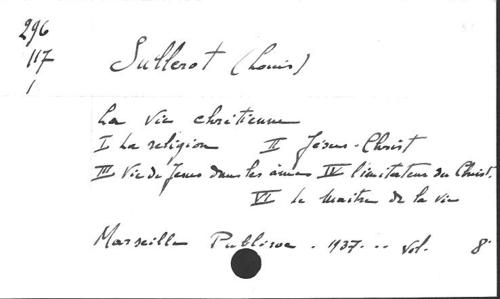 296
117
1
Sullerot (Louis)
La vie chrétienne
I La religion II Jésus-Christ
III Vie de Jésus dans les âmes IV l'imitateur du Christ.
VI Le maître de la vie
Marseille Publiroc . 1937 ... vol. 8°